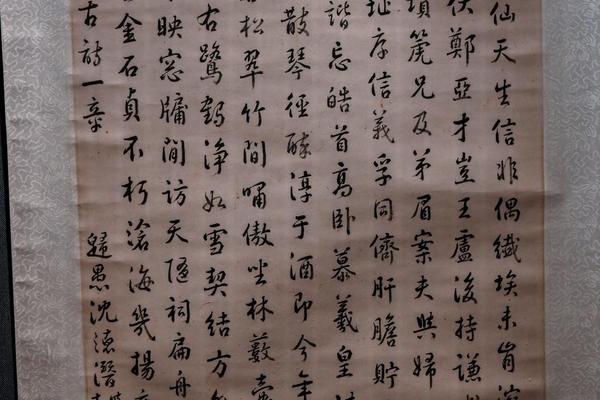 仙天生信非偶纖埃未肯
伏鄭亞才豈王盧後持謙
壎篪兄及弟眉案夫與婦
址序信義孚同儕肝膽貯
諧忘皓首高卧慕羲皇
散琴徑醉淳于酒即今年
松翠竹間嘯傲坐林藪
右鷺鶴淨如雪契結方
映窓牖間訪天隨祠扁舟
金石貞不朽滄海幾揚
古詩一章
歸愚沈德潛